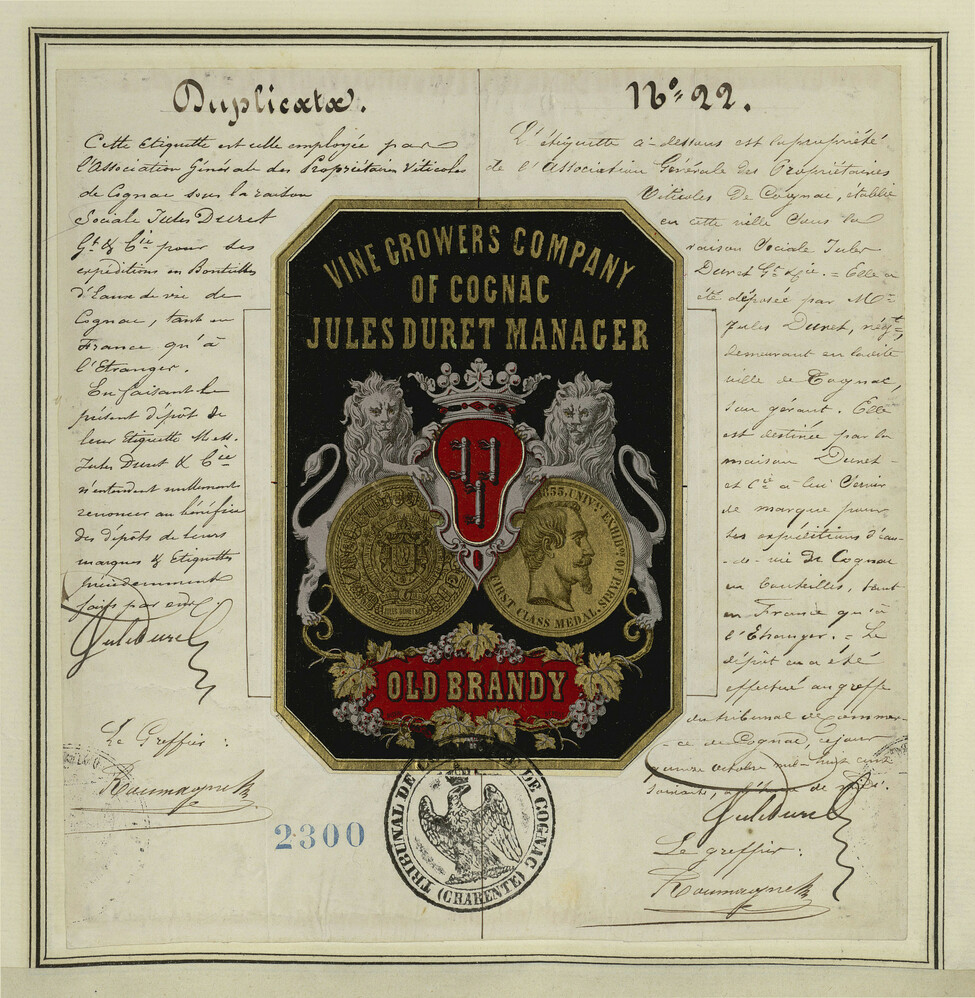 Duplicata.
Cette Etiquette est celle employée par
l'Association Générale des Propriétaires Viticoles
de Cognac sous la raison
Sociale Jules Duret
Gt & Cie pour ses
expéditions en Bouteilles
d'Eaux de vie de
Cognac, tant en
France qu'à
l'Etranger.
En faisant le
présent dépôt de
leur Etiquette MM.
Jules Duret & Cie
n'entendent nullement
renoncer au bénéfice
des dépôts de leurs
marques & Etiquettes
précédemment
faits par eux.
Jules Duret
Le Greffier :
No 22.
L'étiquette ci-dessous est la propriété
de l'Association Générale des Propriétaires
Viticoles De Cognac, établie
en cette ville sous la
raison Sociale Jules
Duret Gt & Cie. = Elle a
été déposée par Mr
Jules Duret, négt,
demeurant en ladite
ville de Cognac,
son gérant. Elle
est destinée par la
maison Duret
et Cie à lui servir
de marque pour
les expéditions d'eau-
-de-vie de Cognac
en bouteilles, tant
en France qu'à
l'Etranger. = Le
dépôt en a été
effectué au greffe
du tribunal de commer-
-ce de Cognac, ce jour
quinze octobre mil huit cent
soixante, à l'heure de midi.
Jules Duret
Le greffier :
VINE GROWERS COMPANY
OF COGNAC
JULES DURET MANAGER
1855, UNIVL EXHIBON OF PARIS
FIRST CLASS MEDAL
OLD BRANDY
TRIBUNAL DE COMMERCE DE COGNAC
(CHARENTE)
2300